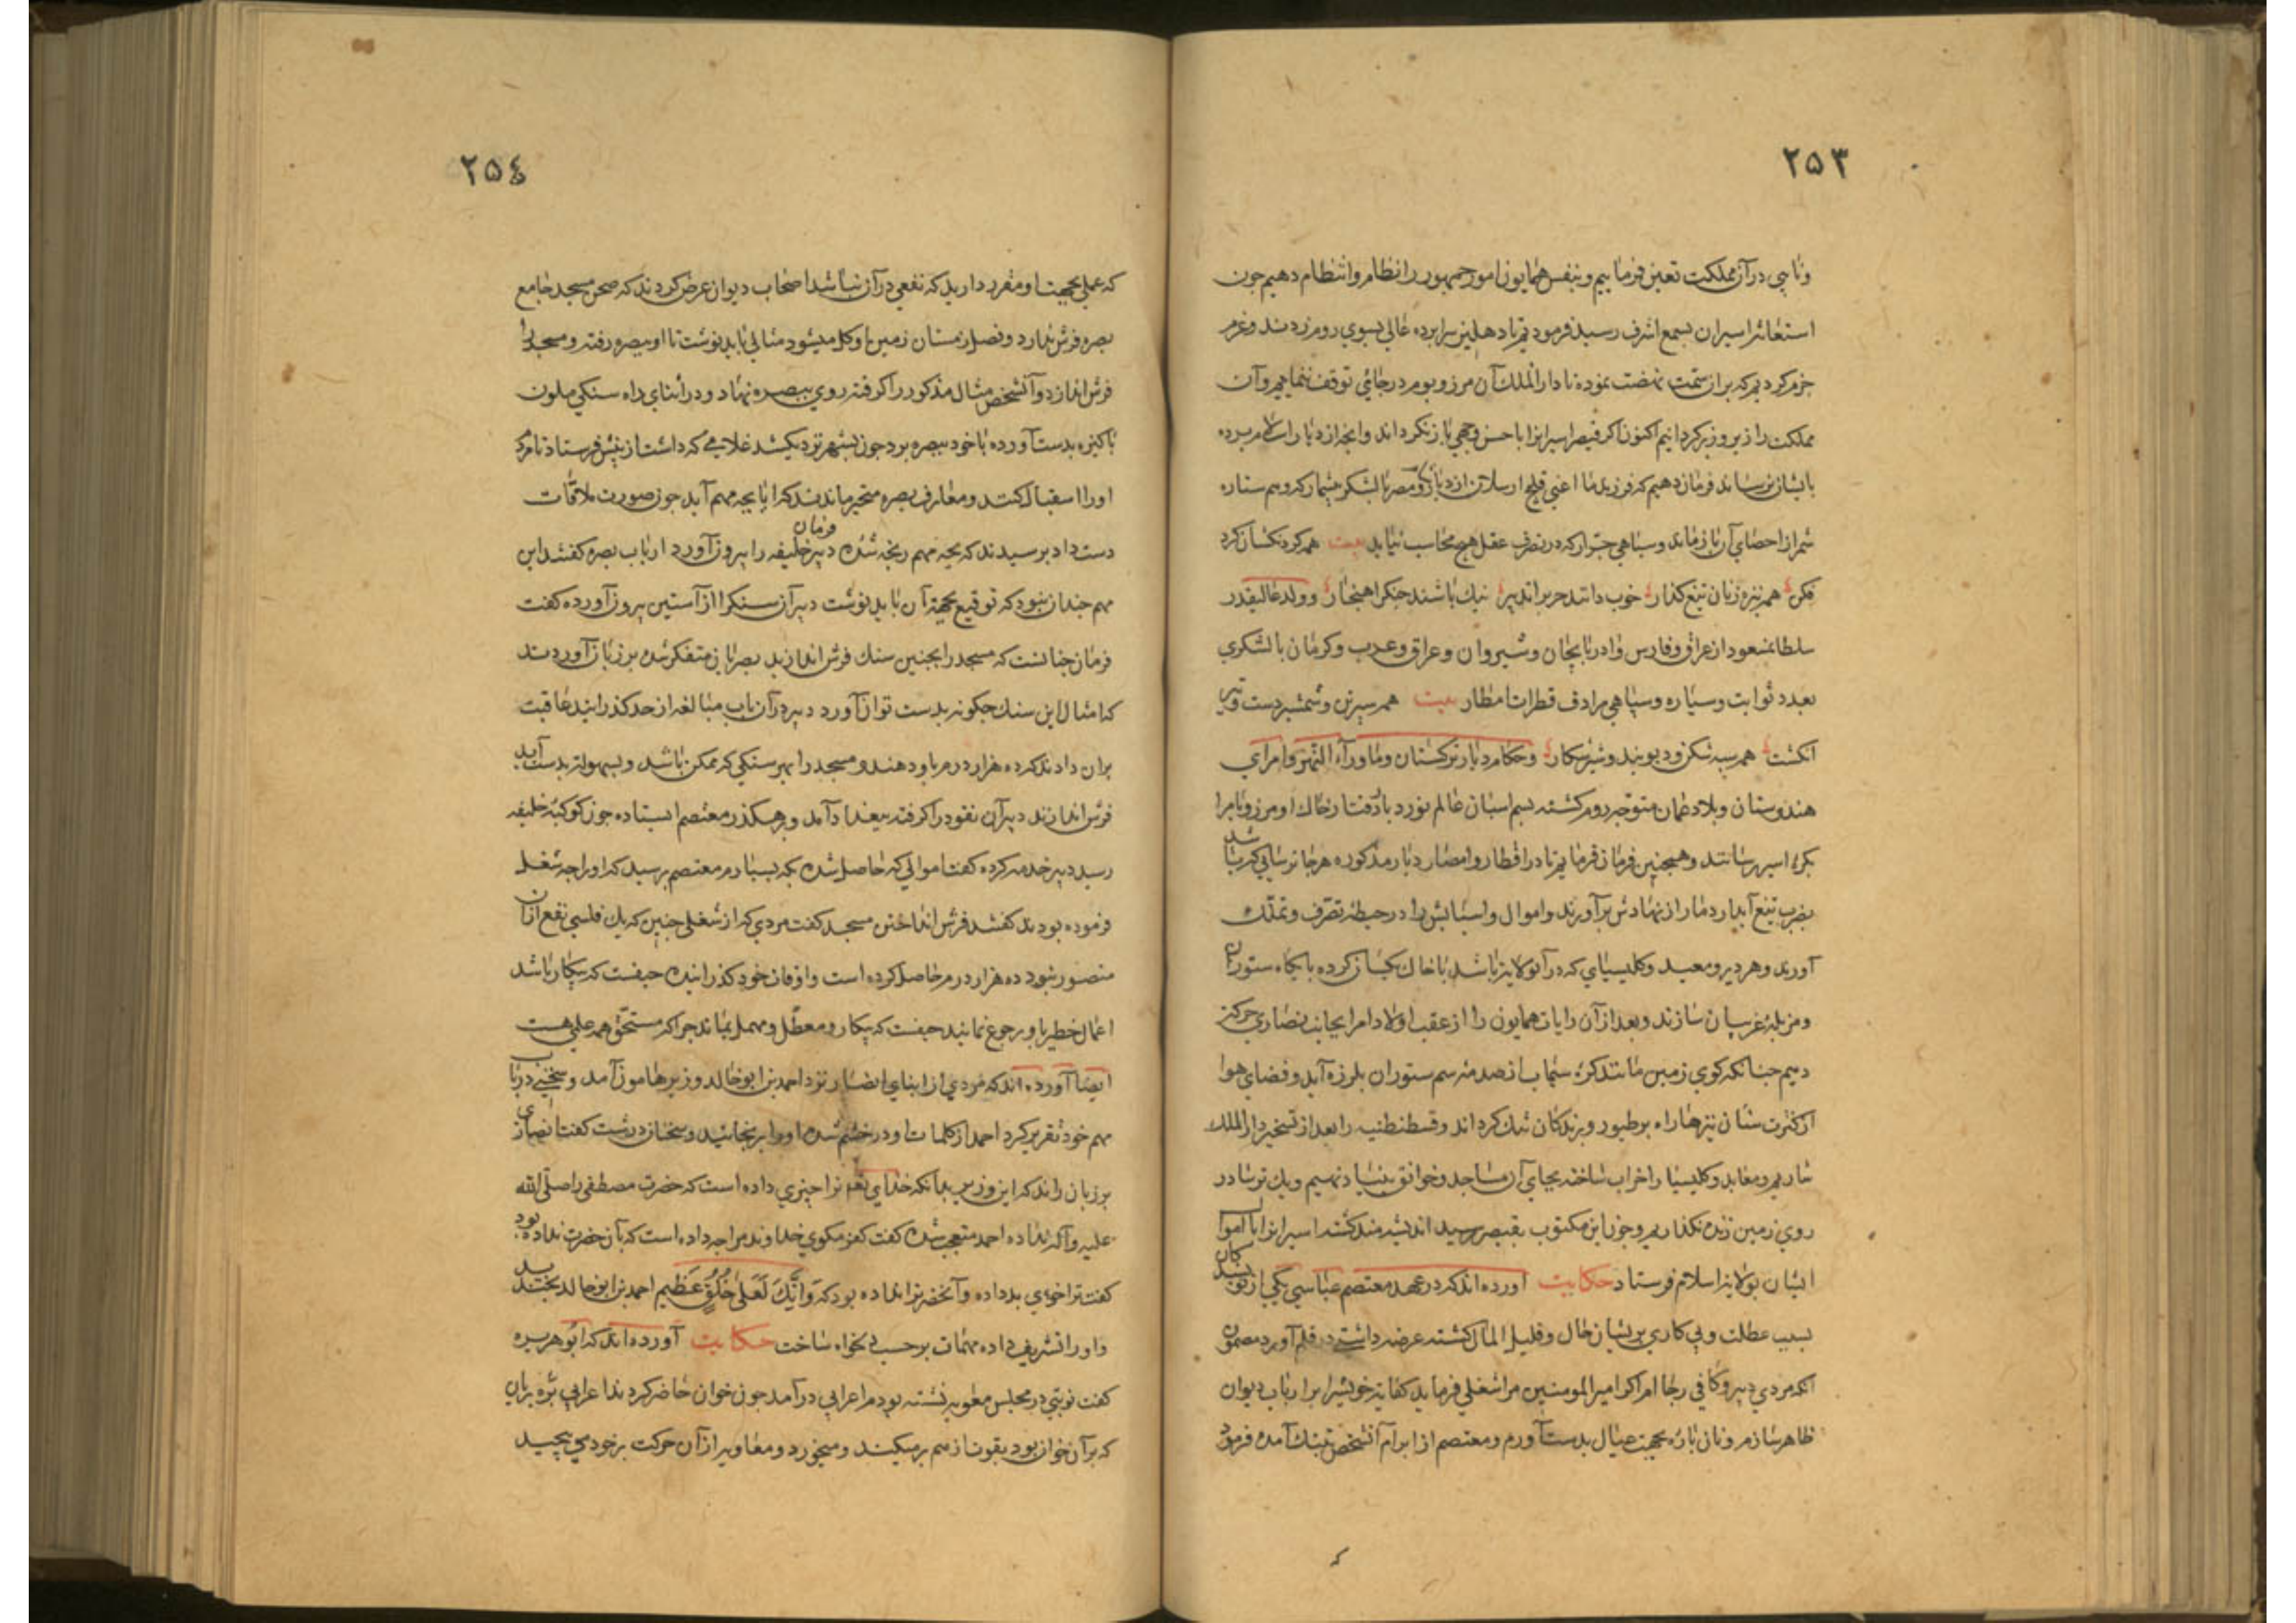 ۲۵۳
و نایبی در آن مملکت تعین فرماییم و بنفس همایون امور جمهور را نظام و انتظام دهیم جون
استغاثه اسیران بسمع اشرف رسید فرمودیم تا دهلیز سرابرده عالی بسوی روم زدند و عزم
جزم کردیم که بران سمت نهضت نموده تا دار الملک آن مرز و بوم در جائی توقف ننماییم و آن
مملکت را زیر و زبر کردانیم اکنون اکر قیصر اسیرانرا باحسن وجهی باز نکرداند و انجه از دیار اسلام برده
بایشان نرساند فرمان دهیم که فرزند ما اعنی قلج ارسلان از دیار مصر با لشکر بیشمار که وهم ستاره
شمر از احصای آن باز ماند و سباهی جرّار که در تصرف عقل هیچ محاسب نیاید بیت همه کردنکشان کرد
فکن همه نیزه زنان تیغ کذار خوب دانند حرب را تدبیر نیک باشند جنک را هنجار و ولد عالیقدر
سلطانمسعود از عراق و فارس و ادربایجان و شیروان و عراق عرب و کرمان با لشکری
بعدد ثوابت و سیاره و سپاهی مرادف قطرات امطار بیت همه سپرتن و شمشیر دست و تیر
انکشت همه سبه شکن و دیوبند و شیر شکار و حکام دیار ترکستان و ماوراء النهر و امرای
هندوستان و بلاد عمان متوجه روم کشته بسم اسبان عالم نورد باد رفتار خاک او مرز و بام را
بکرۀ اسیر رسانند و همجنین فرمان فرماییم تا در اقطار و امصار دیار مذکوره هرجا ترسائی که باشد
بضرب تیغ آبدار دمار از نهادش برآورند و اموال و اسبابش را در حیطۀ تصرف و تملّک
آورند و هر دیر و معبد و کلیسیای که در آنولایت باشد با خاک یکسان کرده پایکاه ستوران
و مزبلۀ خرسان سازند و بعد از آن رایات همایون را از عقب اولاد امرا بجانب نصاری حرکت
دهیم جنانکه کوی زمین مانند کرۀ سیماب از صدمۀ سم ستوران بلرزه آید و فضای هوا
از کثرت سنان نیزها راه بر طیور و پرندکان تنک کرداند و قسطنطنیه را بعد از تسخیر دار الملک
سازیم و معابد و کلیسیا را خراب ساخته بجای آن مساجد و خوانق بنیاد نهیم و یک ترسا در
روی زمین زنده نکذاریم و جون این مکتوب بقیصر رسید اندیشه مند کشته اسیرانرا با اموال
ایشان بولایت اسلام فرستاد حکایت آورده اند که در عهد معتصم عباسی یکی از نویسندکان
بسبب عطلت و بی کاری بریشان حال و قلیل المال کشته عرضه داشتی در قلم آورد مضمون
آنکه مردی دبیر و کافی رجا ام اکر امیر المومنین مرا شغلی فرماید کفایت خویشرا بر ارباب دیوان
ظاهر سازم و نان باره بجهت عیال بدست آورم و معتصم از ابرام آنشخص بتنک آمده فرمود
۲۵۴
که عملی بجهت او مقرر دارید که نفعی در آن نباشد اصحاب دیوان عرض کردند که صحن مسجد جامع
بصره فرش ندارد و فصل زمستان زمین او کل میشود مثالی باید نوشت تا او ببصره رفته و مسجد را
فرش اندازد و آنشخص مثال مذکور را کرفته روی ببصره نهاد و در اثنای راه سنکی ملون
باکیزه بدست آورده با خود ببصره برد جون بشهر نزدیک شد غلامی که داشت از پیش فرستاد تا مردم
او را استقبال کنند و معارف بصره متحیر ماندند که آیا بجه مهم آید جون صورت ملاقات
دست داد برسیدند که بجه مهم رنجه شدۀ دبیر فرمان خلیفه را بیرون آورد ارباب بصره کفتند این
مهم جندان نبود که توقیع بجهت آن باید نوشت دبیر آن سنک را از آستین بیرون آورده کفت
فرمان جنانست که مسجد را بجنین سنک فرش اندازید بصریان متفکر شده بر زبان آوردند
که امثال این سنک جکونه بدست توان آورد دبیر در آن باب مبالغه از حد کذرانید عاقبت
بران دادند که ده هزار درم باو دهند و مسجد را بهر سنکی که ممکن باشد و بسهولت بدست آید
فرش اندازند دبیر آن نقود را کرفته ببغداد آمد و برهکذر معتصم ایستاده جون کوکبۀ خلیفه
رسید دبیر خدمه کرده کفت اموالی که حاصل شده بکه بسپارم معتصم برسید که او را جه شغل
فرموده بودند کفتند فرش انداختن مسجد کفت مردی که از شغلی جنین که یک فلس نفع از آن
متصور نبود ده هزار درم حاصل کرده است و اوقات خود کذرانیده حیفست که بیکار باشد
اعمال خطیر باو رجوع نمایید حیفست که بیکار و معطّل و مهمل بماند جرا که مستحق همه عملی هست
ایضا آورده اند که مردی از ابنای انصار نزد احمد بن ابو خالد وزیر مامون آمد و سخنی در باب
مهم خود تقریر کرد احمد از کلمات او در خشم شده او را برنجانید و سخنان درشت کفت انصاری
بر زبان راند که این وزیر بدانکه خدای تعالی ترا چیزی داده است که حضرت مصطفی را صلی الله
علیه و آله نداده احمد متعجب شده کفت کفر مکوی خداوند مرا جه داده است که بآن حضرت نداده بود
کفت ترا خوی بد داده و آنحضرت را نداده بود که وَاِنَّکَ لَعَلیٰ خُلُقٍ عَظیم احمد بن ابو خالد بخندید
و او را تشریف داده مهمات بر حسب دلخواه ساخت حکایت آورده اند که ابو هریره
کفت نوبتی در مجلس معویه نشسته بودم اعرابی درآمد جون خوان حاضر کردند اعرابی برۀ بریان
که بر آن خوان بود بقوت از هم برمیکند و میخورد و معاویه از آن حرکت برخود می پیچید